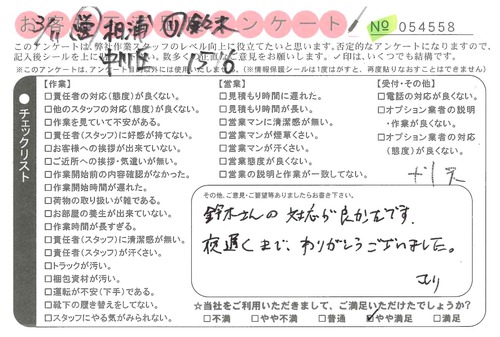 アンケート
No 054558
3/1 営 相浦 鈴木
1516
このアンケートは、弊社作業スタッフのレベル向上に役立てたいと思います。否定的なアンケートになりますので、
※このアンケートは、アンケート目的以外には使われません。(※情報保護シールは1度はがすと、再度貼りなおすことはできません)
チェックリスト
【作業】
□責任者の対応(態度)が良くない。
□他のスタッフの対応(態度)が良くない。
□作業を見ていて不安がある。
□責任者(スタッフ)に好感が持てない。
□お客様への挨拶が出来ていない。
□ご近所への挨拶・気遣いが無い。
□作業開始前の内容確認がなかった。
□作業開始時間が遅れた。
□荷物の取り扱いが雑である。
□お部屋の養生が出来ていない。
□作業時間が長すぎる。
□責任者(スタッフ)に清潔感が無い。
□責任者(スタッフ)が汗くさい。
□トラックが汚い。
□梱包資材が汚い。
□運転が不安(下手)である。
□靴下の履き替えをしてない。
□スタッフにやる気がみられない。
【営業】
□見積もり時間に遅れた。
□見積もり時間が長い。
□営業マンに清潔感が無い。
□営業マンが煙草くさい。
□営業マンが汗くさい。
□営業態度が良くない。
□営業の説明と作業が一致してない。
【受付・その他】
□電話の対応が良くない。
□オプション業者の説明
・作業が良くない。
□オプション業者の対応
(態度)が良くない。
その他、ご意見・ご要望等ありましたらお書き下さい。
鈴木さんの対応が良かったです。
夜遅くまで、ありがとうございました。
☆当社をご利用いただきまして、ご満足いただけたでしょうか?
□不満 □やや不満 □普通 ☑やや満足 □満足